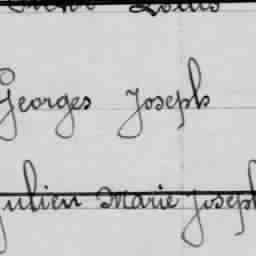 Louis
Georges Joseph
Julien Marie Joseph